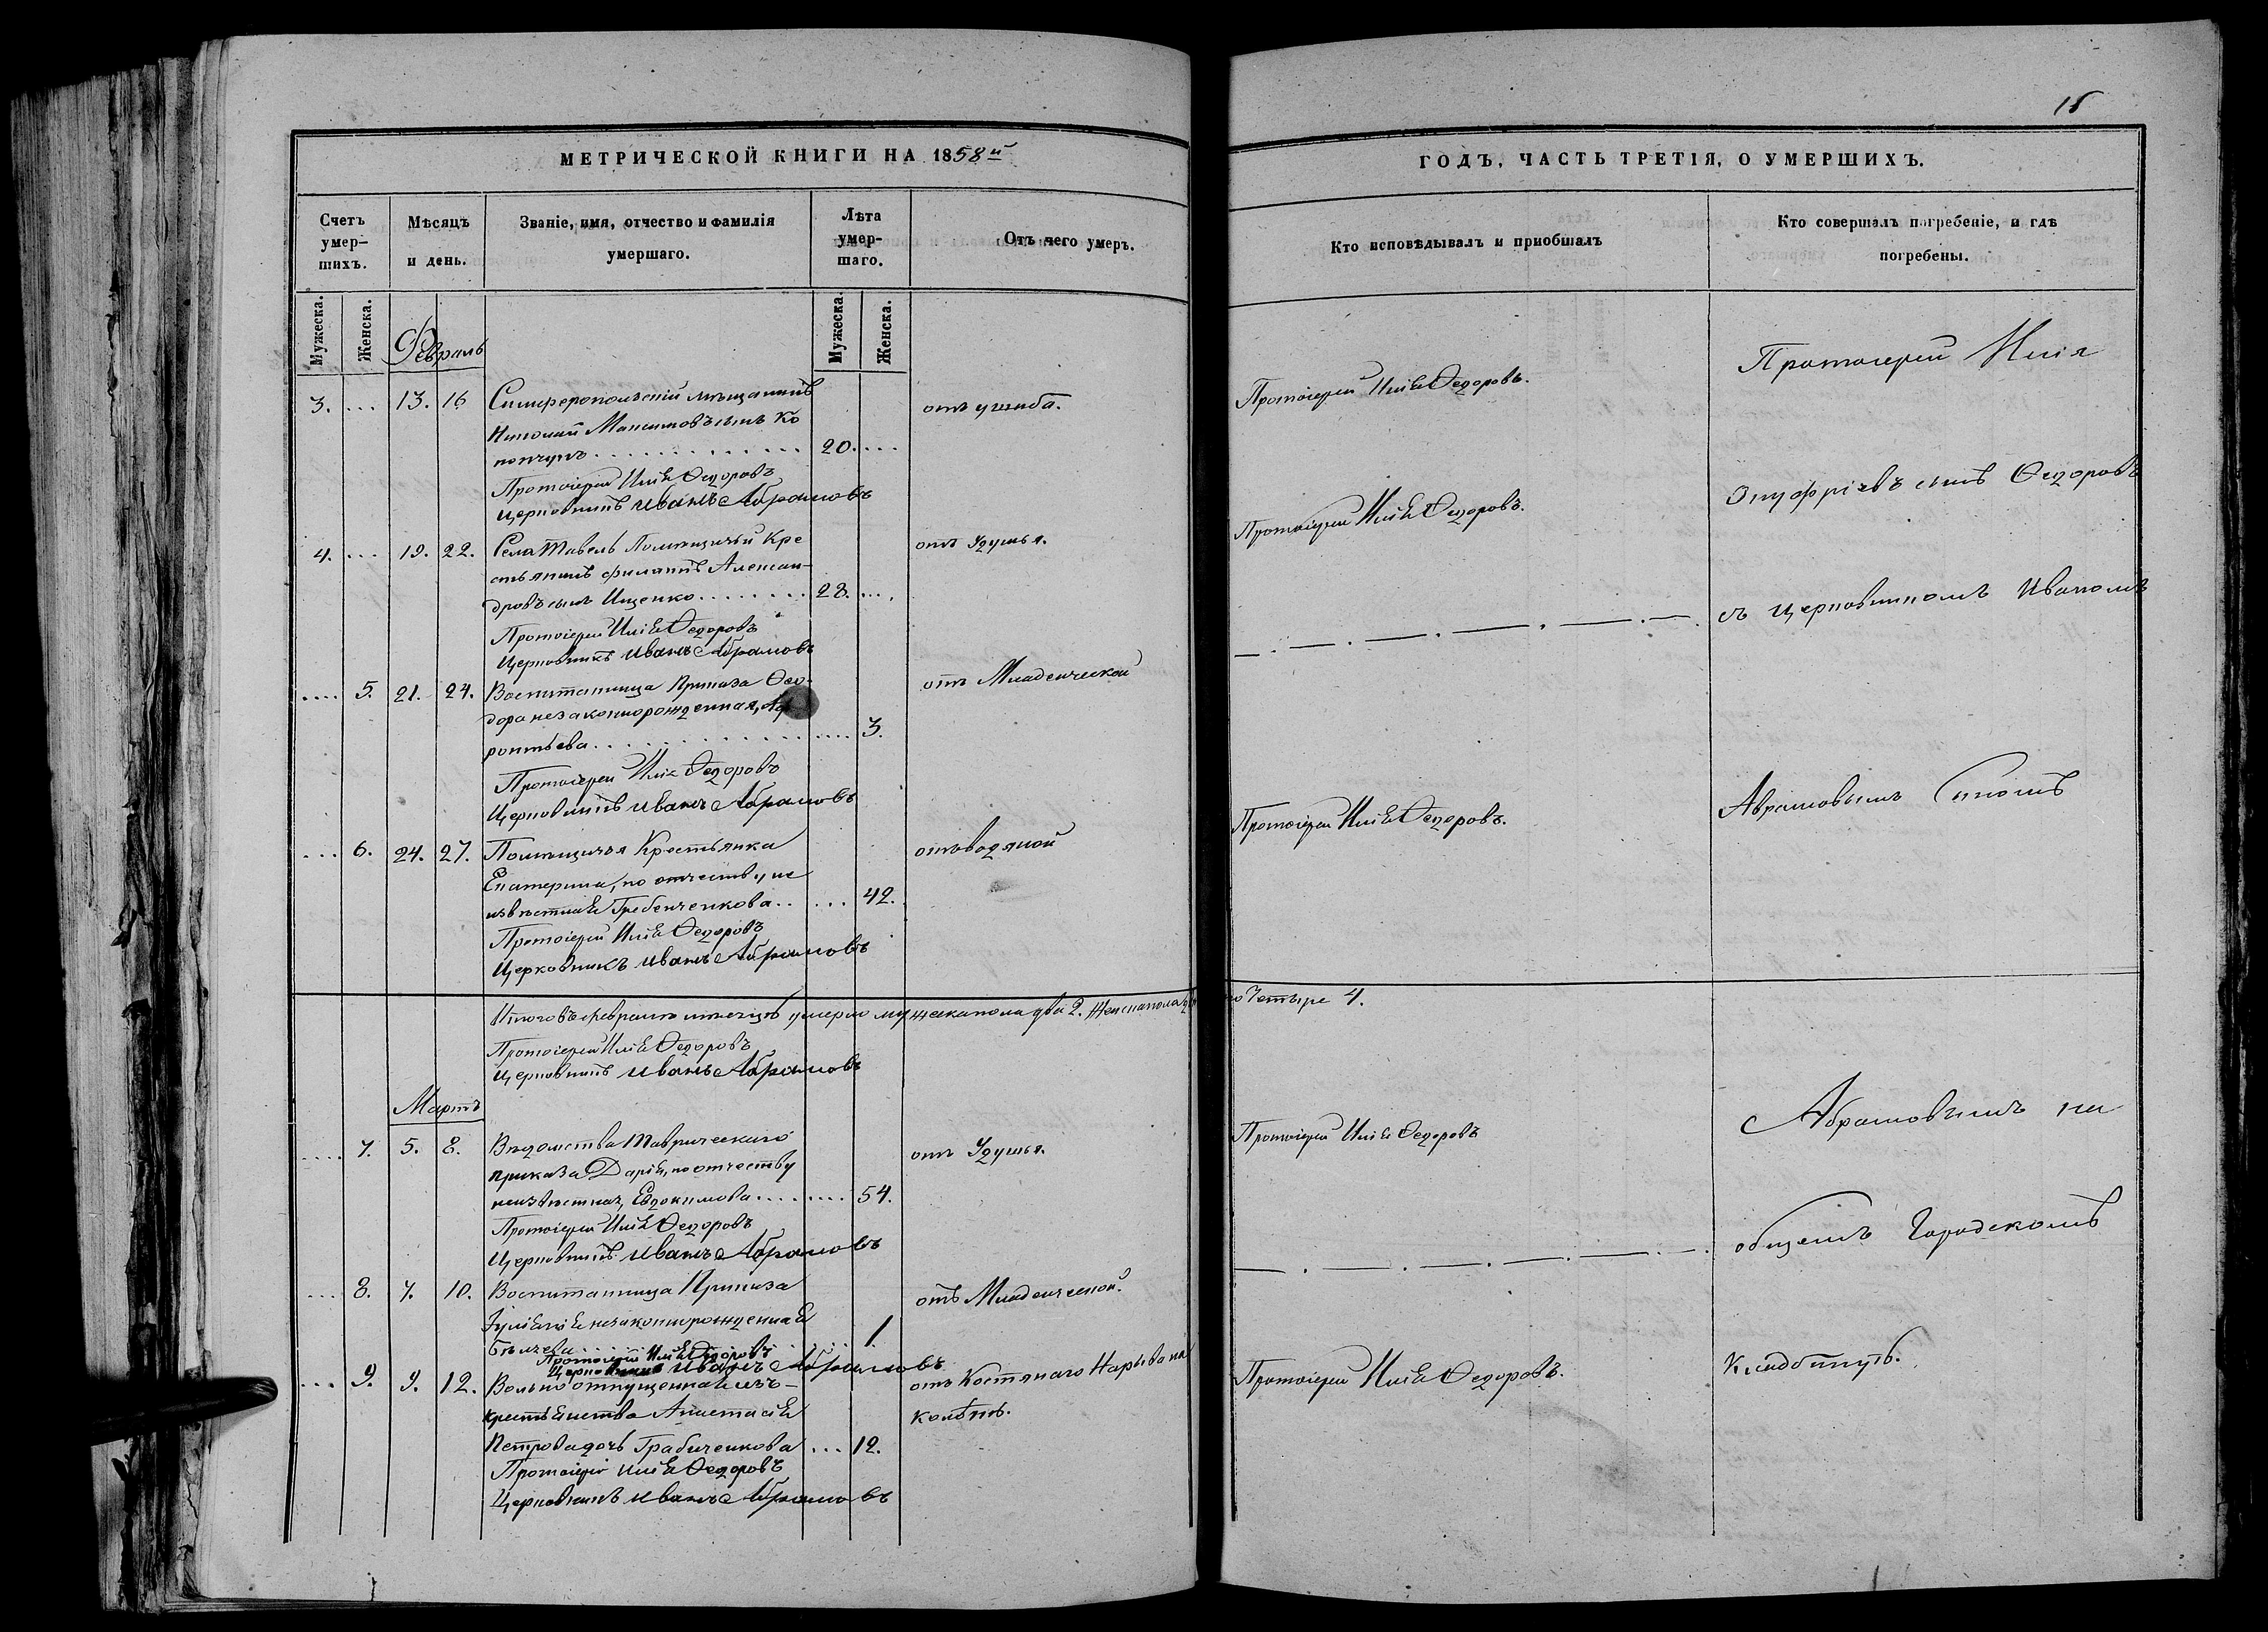 15
МЕТРИЧЕСКОЙ КНИГИ НА 1858й
Счетъ умер-
шихъ.
Мѣсяцъ
и день.
Званіе, имя, отчество и фамилія
умершаго.
Лѣта
умер-
шаго.
Отъ чего умеръ.
Мужеска.
Женска.
Февраль
Мужеска.
Женска.
3. ... 13. 16 Симферопольскій мѣщанинъ
Николай Максимовъ сынъ Ко
20. ... отъ ушиба.
Протоіерей Илія Ѳедоровъ
Церковникъ Иванъ Абрамовъ
4. ... 19. 22. Села Тавель Помѣщичьи Кре
стьянинъ Филаптъ Алексан-
дровъ сынъ Ищенко ........ 28. ... отъ Удушья.
Протоіерей Илія Ѳедоровъ
Церковникъ Иванъ Абрамовъ
.... 5. 21. 24. Воспитаница Приказа Ѳео-
дора незаконнорожденная,
ронтьева ............ 3. отъ Младенческой
Протоіерей Илія Ѳедоровъ
Церковникъ Иванъ Абрамовъ
... 6. 24. 27. Помѣщичья Крестьянка
Екатерина, по отчеству не
извѣстная Гребенченкова .. ... 42. отъ водяной
Протоіерей Илія Ѳедоровъ
Церковникъ Иванъ Абрамовъ
Итого въ Февралѣ мѣсяцѣ умерло мужеска пола два 2. Женска пола
Протоіерей Илія Ѳедоровъ
Церковникъ Иванъ Абрамовъ
Мартъ
.... 7. 5. 8. Вѣдомства Таврическаго
приказа Дарія, по отчеству
неизвѣстная, Евдокимова ........ 54. отъ Удушья.
Протоіерей Илія Ѳедоровъ
Церковникъ Иванъ Абрамовъ
.... 8. 7. 10. Воспитанница Приказа
Іуліанія незаконнорожденная
1. отъ Младенческой.
Протоіерей Илія Ѳедоровъ
Церковникъ Иванъ Абрамовъ
... 9. 9. 12. Вольноотпущенная изъ-
крестьянства Анастасія
Петрова дочь Грабиченкова ... 12. отъ Костянаго Нарыва на
колѣнѣ.
Протоіерей Илія Ѳедоровъ
Церковникъ Иванъ Абрамовъ
ГОДЪ, ЧАСТЬ ТРЕТІЯ, О УМЕРШИХЪ.
Кто исповѣдывалъ и пріобщалъ
Кто совершалъ погребеніе, и гдѣ
погребены.
Протоіерей Илія Ѳедоровъ.
Протоіерей Илія Ѳедоровъ.
Протоіерей Илія Ѳедоровъ.
четыре 4.
Протоіерей Илія Ѳедоровъ
Протоіерей Илія Ѳедоровъ.
Протоіерей Илія
Онуфріевъ сынъ Ѳедоровъ
съ Церковникомъ Иваномъ
Аврамовымъ Сыномъ
Абрамовымъ на
общемъ Городскомъ
Кладбищѣ.